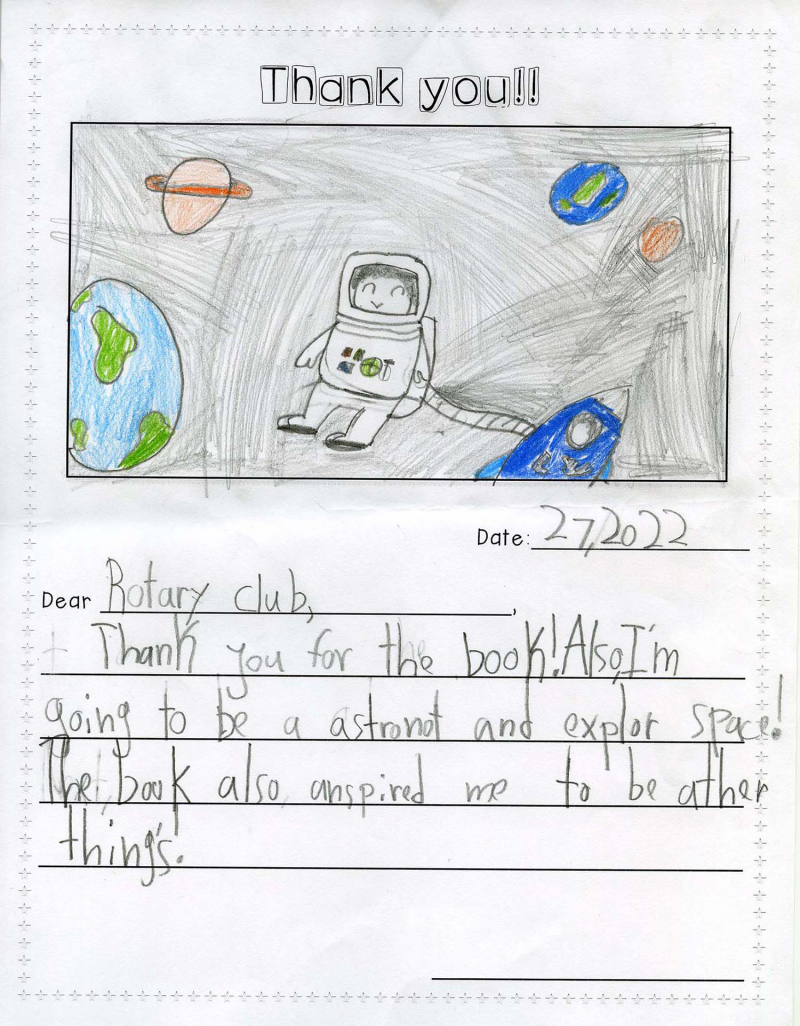 Thank you!!
Date: 27,2022
Dear Rotary club,,
Thank you for the book! Also, I'm
going to be a astronot and explor space!
The book also anspired me to be ather
thing's.